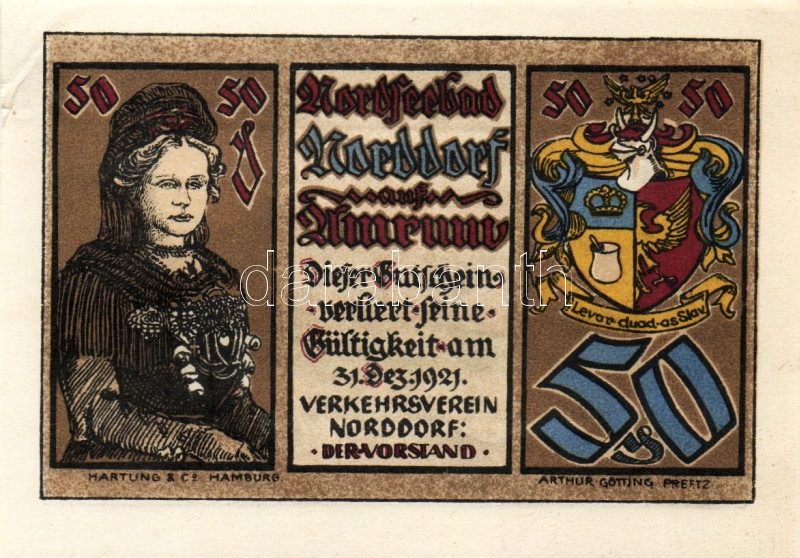 50 50
Nordseebad
Norddorf
auf
Amrum
Dieser Gutschein
verliert seine
Gültigkeit am
31. Dez. 1921.
VERKEHRSVEREIN
NORDDORF:
DER VORSTAND
50 50
Levar duad as Slav
50
HARTUNG & Co HAMBURG.
ARTHUR GÖTTING PREETZ
darabanth